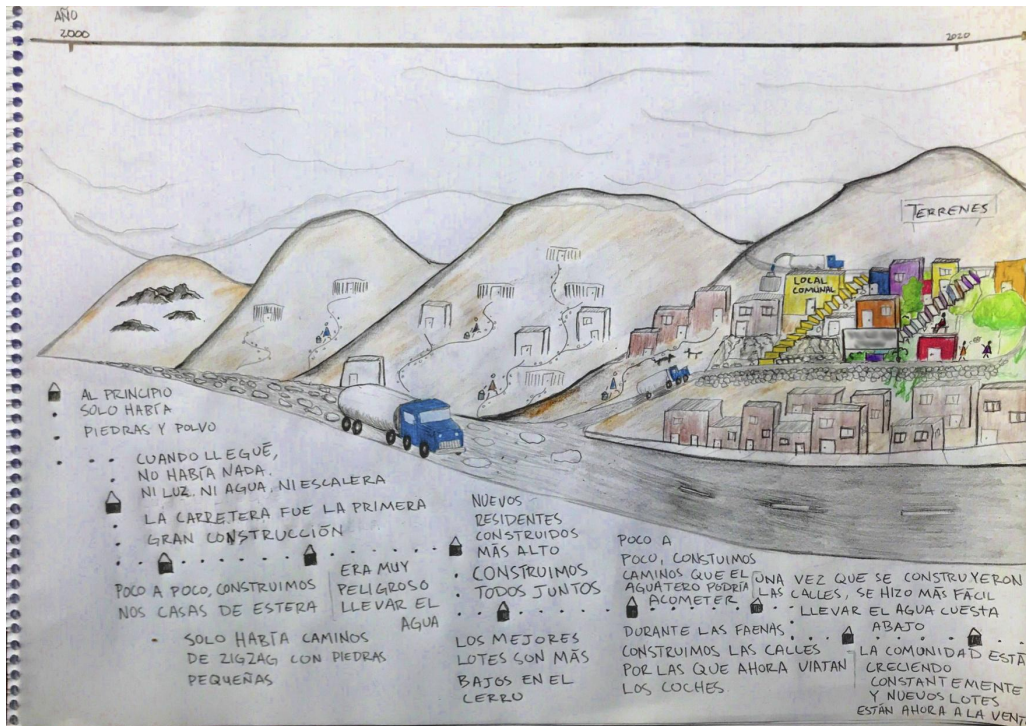 AÑO
2000
2020
TERRENES
LOCAL
COMUNAL
AL PRINCIPIO
SOLO HABÍA
PIEDRAS Y POLVO
CUANDO LLEGUÉ,
NO HABÍA NADA.
NI LUZ. NI AGUA. NI ESCALERA
LA CARRETERA FUE LA PRIMERA
GRAN CONSTRUCCIÓN
POCO A POCO, CONSTRUIMOS
NOS CASAS DE ESTERA
ERA MUY
PELIGROSO
LLEVAR EL
AGUA
SOLO HABÍA CAMINOS
DE ZIGZAG CON PIEDRAS
PEQUEÑAS
NUEVOS
RESIDENTES
CONSTRUIDOS
MÁS ALTO
CONSTRUIMOS
TODOS JUNTOS
LOS MEJORES
LOTES SON MÁS
BAJOS EN EL
CERRO
POCO A
POCO, CONSTUIMOS
CAMINOS QUE EL
AGUATERO PODRÍA
ACOMETER
DURANTE LAS FAENAS
CONSTRUIMOS LAS CALLES
POR LAS QUE AHORA VIATAN
LOS COCHES.
UNA VEZ QUE SE CONSTRUYERON
LAS CALLES, SE HIZO MÁS FÁCIL
LLEVAR EL AGUA CUESTA
ABAJO
LA COMUNIDAD ESTÁ
CRECIENDO
CONSTANTEMENTE
Y NUEVOS LOTES
ESTÁN AHORA A LA VENT